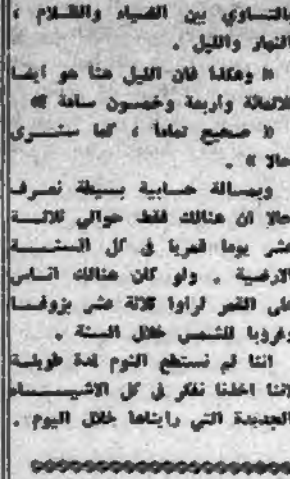 بالتساوي بين الضياء والظلام ،
النهار والليل .
« وهكذا فان الليل هنا هو ايضا
ثلاثمائة وأربعة وخمسون ساعة »
« صحيح تماما ، كما سنرى
حالا » .
وبمسالة حسابية بسيطة نعرف
حالا ان هنالك فقط حوالي ثلاثة
عشر يوما قمريا في كل السنة
الارضية . ولو كان هنالك اناس
على القمر لراوا ثلاثة عشر بزوغا
وغروبا للشمس خلال السنة .
اننا لم نستطع النوم لمدة طويلة
لاننا اخذنا نفكر في كل الاشياء
الجديدة التي رايناها خلال اليوم .